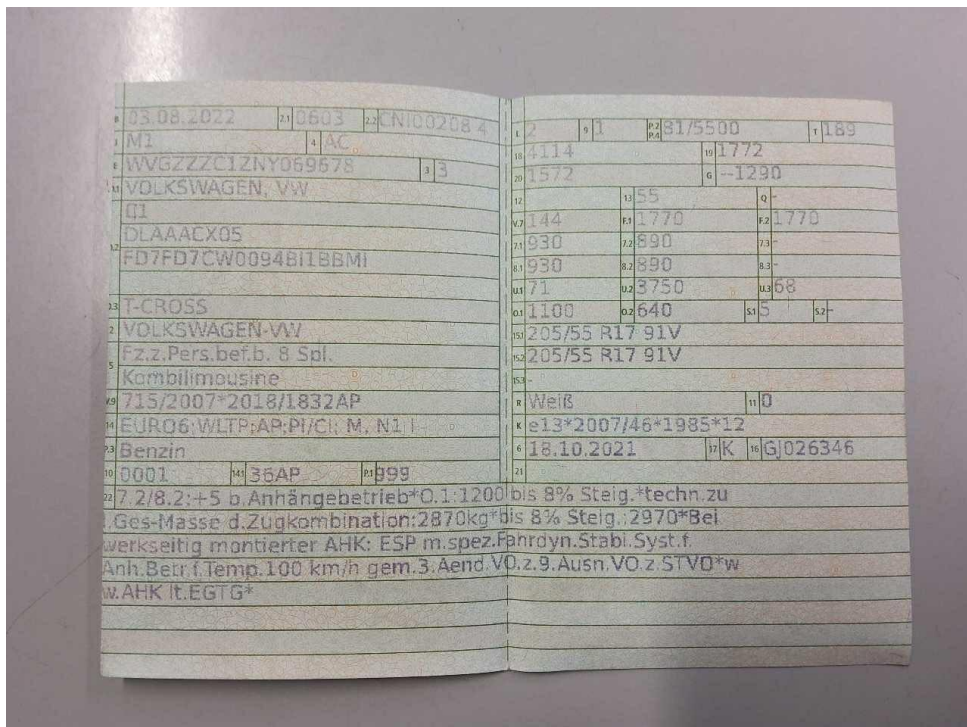 B 03.08.2022 2.1 0603 2.2 CNI00208 4
J M1 4 AC
E WVGZZZC1ZNY069678 3 3
D.1 VOLKSWAGEN, VW
D.2 C1
DLAAACX05
FD7FD7CW0094BI1BBMI
D.3 T-CROSS
2 VOLKSWAGEN-VW
5 Fz.z.Pers.bef.b. 8 Spl.
Kombilimousine
V.9 715/2007*2018/1832AP
14 EURO6;WLTP;AP;PI/CI; M, N1 I
P.3 Benzin
10 0001 14.1 36AP P.1 999
L 2 9 1 P.2 P.4 81/5500 T 189
18 4114 19 1772
20 1572 G --1290
12 13 55 Q -
V.7 144 F.1 1770 F.2 1770
7.1 930 7.2 890 7.3 -
8.1 930 8.2 890 8.3 -
U.1 71 U.2 3750 U.3 68
O.1 1100 O.2 640 S.1 5 S.2 -
15.1 205/55 R17 91V
15.2 205/55 R17 91V
15.3 -
R Weiß 11 0
K e13*2007/46*1985*12
6 18.10.2021 17 K 16 GJ026346
21
22 7.2/8.2:+5 b.Anhängebetrieb*O.1:1200 bis 8% Steig.*techn.zu
l.Ges-Masse d.Zugkombination:2870kg*bis 8% Steig.:2970*Bei
werkseitig montierter AHK: ESP m.spez.Fahrdyn.Stabi.Syst.f.
Anh.Betr.f.Temp.100 km/h gem.3.Aend.VO.z.9.Ausn.VO.z.STVO*w
w.AHK lt.EGTG*